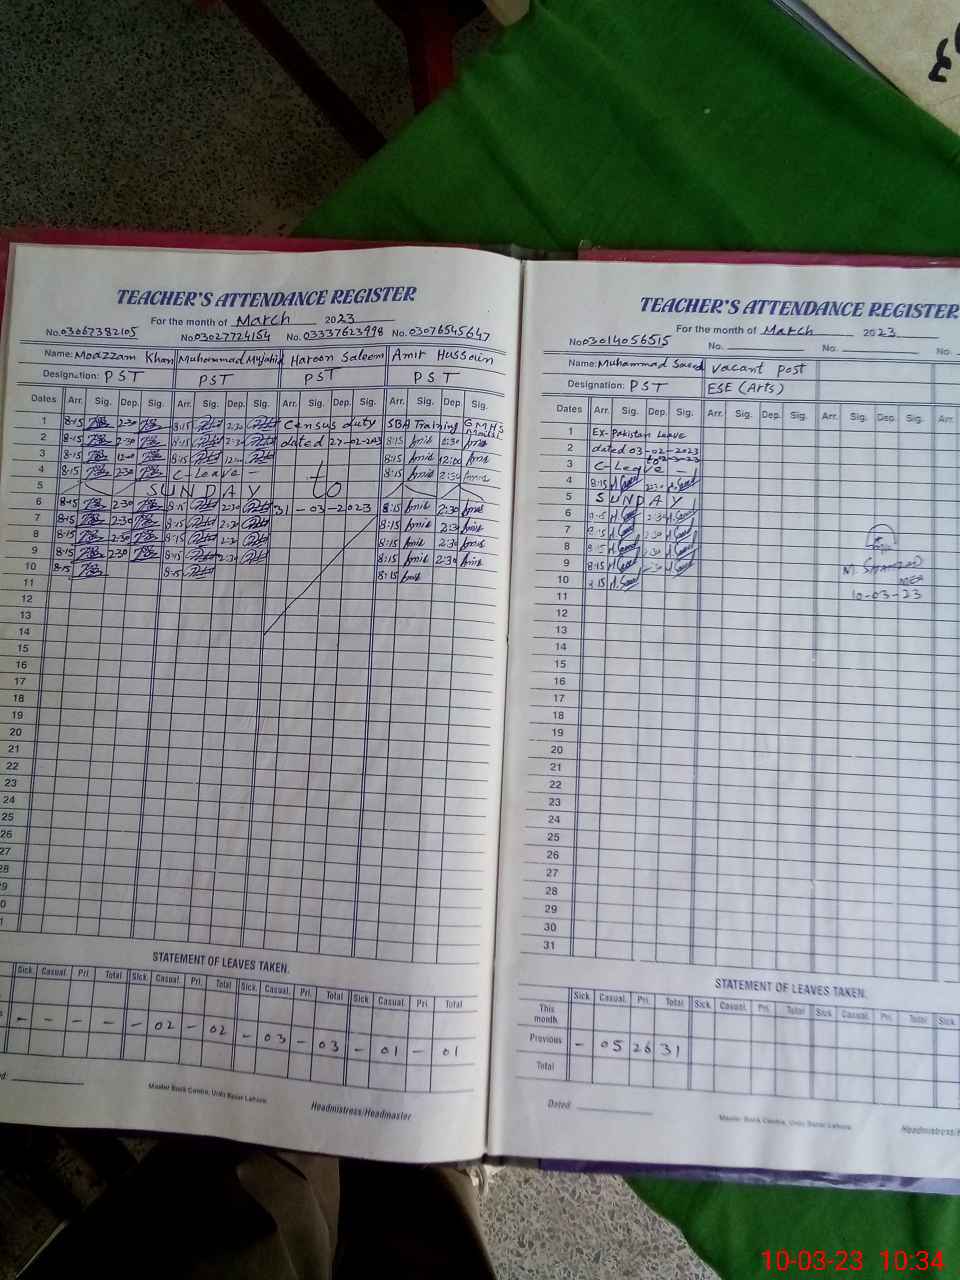 TEACHER'S ATTENDANCE REGISTER
For the month of March 2023
No.03067382105 No.03027724154 No. 03337623998 No. 03076545647
Name: Moazzam Khan Muhammad Mujahid Haroon Saleem Amir Hussain
Designation: PST PST PST PST
Dates Arr. Sig. Dep. Sig. Arr. Sig. Dep. Sig. Arr. Sig. Dep. Sig. Arr. Sig. Dep. Sig.
1 8-15 2-30 8-15 2-30 Census duty SBA Training GMHS Model
2 8-15 2-30 8-15 2-30 dated 27-02-2023 8:15 2:30
3 8-15 12-00 8-15 12-00 8:15 12:00
4 8-15 2-30 C-Leave to 8:15 2:30
5 SUNDAY
6 8-15 2-30 8-15 2-30 31-03-2023 8:15 2:30
7 8-15 2-30 8-15 2-30 8:15 2:30
8 8-15 2-30 8-15 2-30 8:15 2:30
9 8-15 2-30 8-15 2-30 8:15 2:30
10 8-15 8-15 8:15
11
12
13
14
15
16
17
18
19
20
21
22
23
24
25
26
27
28
STATEMENT OF LEAVES TAKEN.
Sick. Casual. Pri. Total Sick. Casual. Pri. Total Sick. Casual. Pri. Total Sick. Casual. Pri. Total
- - - - - 02 - 02 - 03 - 03 - 01 - 01
Master Book Centre, Urdu Bazar Lahore.
Headmistress/Headmaster
TEACHER'S ATTENDANCE REGISTER
For the month of March 2023
No03014056515 No. No. No.
Name: Muhammad Saeed Vacant post
Designation: PST ESE (Arts)
Dates Arr. Sig. Dep. Sig. Arr. Sig. Dep. Sig. Arr. Sig. Dep. Sig. Arr.
1 Ex-Pakistan Leave
2 dated 03-02-2023
3 C-Leave -1
4 8:15 2:30
5 SUNDAY
6 8:15 2:30
7 8:15 2:30
8 8:15 2:30
9 8:15 2:30
10 8:15
11
12
13
14
15
16
17
18
19
20
21
22
23
24
25
26
27
28
29
30
31
M. Shahzad
MEA
10-03-23
STATEMENT OF LEAVES TAKEN.
Sick. Casual. Pri. Total Sick. Casual. Pri. Total Sick. Casual. Pri. Total Sick.
This month
Previous - 05 26 31
Total
Dated
Master Book Centre, Urdu Bazar Lahore.
Headmistress/
10-03-23 10:34